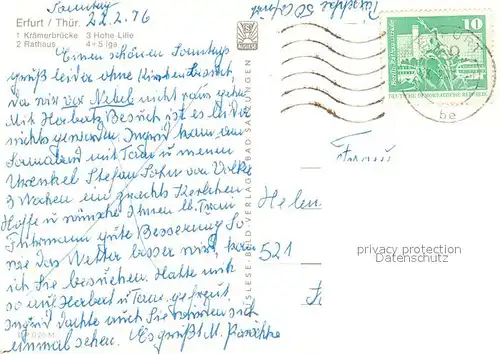 Sonntag
Erfurt / Thür. 22.2.76
1 Krämerbrücke 3 Hohe Lilie
2 Rathaus 4+5 iga
Einen schönen Sonntags
gruß leider ohne Kirchen Besuch,
da wir vor Nebel nicht raus gehen
Mit Herberts Besuch ist es leider
nichts geworden. Ingrid kam am
Sonnabend mit Tom u meinen
Urenkel Stefan Sohn von Volker
3 Wochen ein Kerlchen
Hoffe u wünsche Ihnen lb. Frau
Fuhrmann gute Besserung So
wie das Wetter besser wird, kann
ich Sie besuchen. Hätte mich
so auf Herbert u Tom gefreut.
Ingrid dachte auch Sie würden sich
einmal sehen. Es grüßt M.
AUSLESE-BILD-VERLAG BAD SALZUNGEN
10
DEUTSCHE DEMOKRATISCHE REPUBLIK
be
Frau
Helen
521
privacy protection
Datenschutz